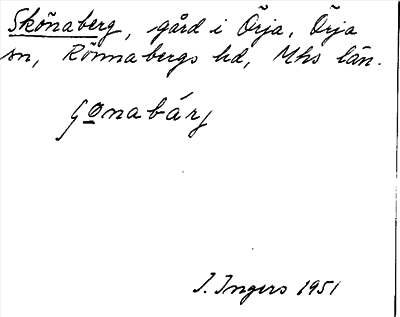 Skönaberg, gård i Örja, Örja
sn, Rönnabergs hd, Mhs län.
ʃonabárj
I. Ingers 1951